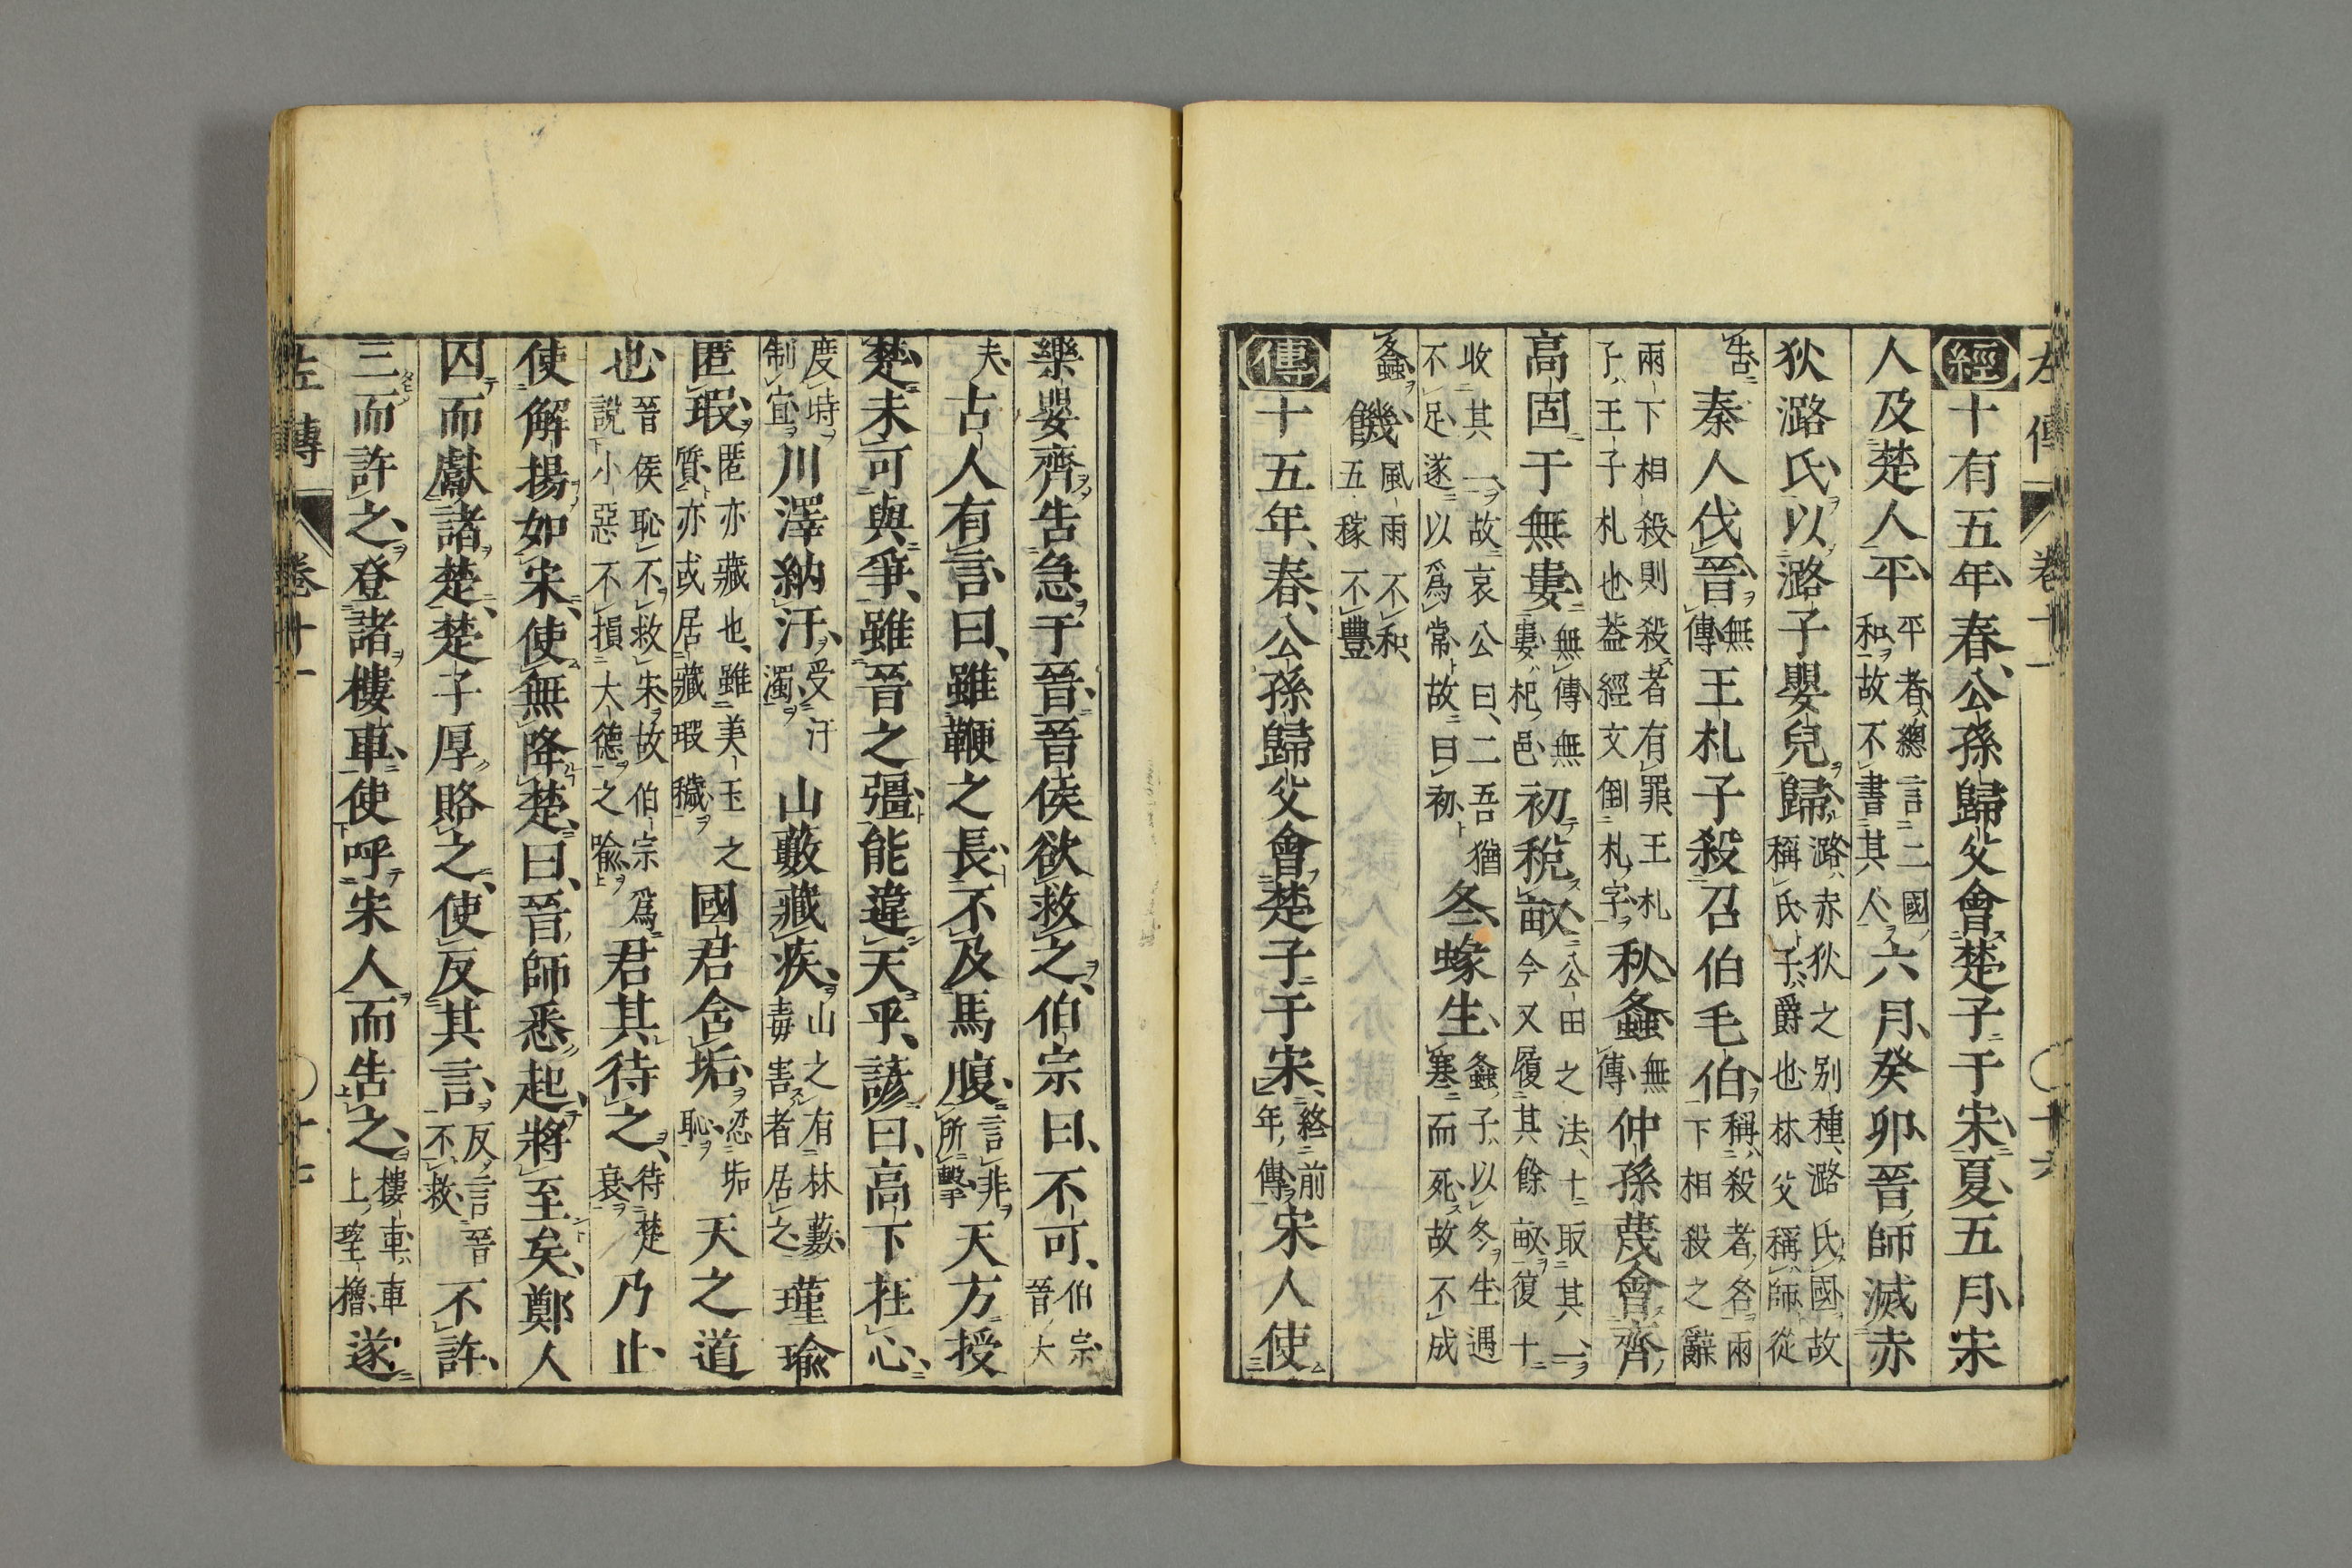 左傳 卷十一 十六
經十有五年春公孫歸父會楚子于宋夏五月宋
人及楚人平平者總言二國和故不書其人六月癸卯晉師滅赤
狄潞氏以潞子嬰兒歸潞赤狄之別種潞氏國故稱氏子爵也林父稱師從
告秦人伐晉無傳王札子殺召伯毛伯稱殺者名兩下相殺之辭
兩下相殺則殺者有罪王札子王子札也蓋經文倒札字秋螽無傳仲孫蔑會齊
高固于無婁無傳無婁杞邑初稅畝公田之法十取其一今又履其餘畝復十
收其一故哀公曰二吾猶不足遂以爲常故曰初冬蝝生螽子以冬生遇寒而死故不成
螽饑風雨不和五稼不豐
傳十五年春公孫歸父會楚子于宋終前年傳宋人使
樂嬰齊告急于晉晉侯欲救之伯宗曰不可伯宗晉大
夫古人有言曰雖鞭之長不及馬腹言非所擊天方授
楚未可與爭雖晉之彊能違天乎諺曰高下在心
度時制宜川澤納汙受汙濁山藪藏疾山之有林藪毒害者居之瑾瑜
匿瑕匿亦藏也雖美玉之質亦或居藏瑕穢國君含垢忍垢恥天之道
也晉侯恥不救宋故伯宗爲說小惡不損大德之喩君其待之待楚衰乃止
使解揚如宋使無降楚曰晉師悉起將至矣鄭人
囚而獻諸楚楚子厚賂之使反其言反言晉不救不許
三而許之登諸樓車使呼宋人而告之樓車車上望櫓遂
左傳 卷十一 十七